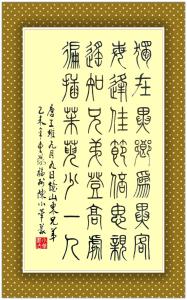 獨在異鄉為異客
每逢佳節倍思親
遙知兄弟登高處
遍插茱萸少一人
唐王維九月九日憶山東兄弟
乙未年
福州陳小